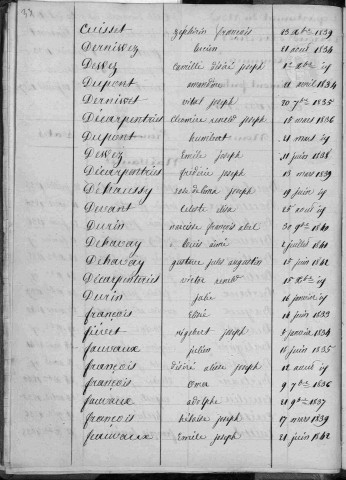 Cuisset zéphirin françois 13 xbre 1839
Derniwez lucien 21 avril 1834
Dewez Camille désiré joseph 1er xbre id
Dupont amandine 11 avril 1834
Derniwez vital joseph 20 7bre 1835
Décarpentries joseph 15 mars 1836
Dupont humbert 21 mars id
Dewez Emile joseph 11 juin 1838
Décarpentries fréderic joseph 13 mars 1839
Dehaussy rose joseph 19 juin id
Duvant Celeste elisa 25 aout id
Durin narcisse françois abel 30 9bre 1840
Dehavay Louis aimé 2 juillet 1841
Dehavay gustave jules augustin 15 juin 1842
Décarpentries victor 15 id
Durin jules 16 janvier id
françois Elisé 14 juin 1833
fievet rigobert joseph 8 janvier 1834
fauvaux julien 11 juin 1835
françois désiré alidor joseph 12 aout id
françois Omer 9 7bre 1836
fauvaux adolphe 21 9bre 1837
françois héloise joseph 17 mars 1839
fauvaux Emile joseph 21 juin 1842